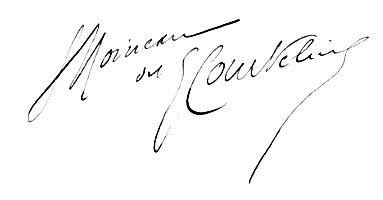 GMoineau
ou GCourteline